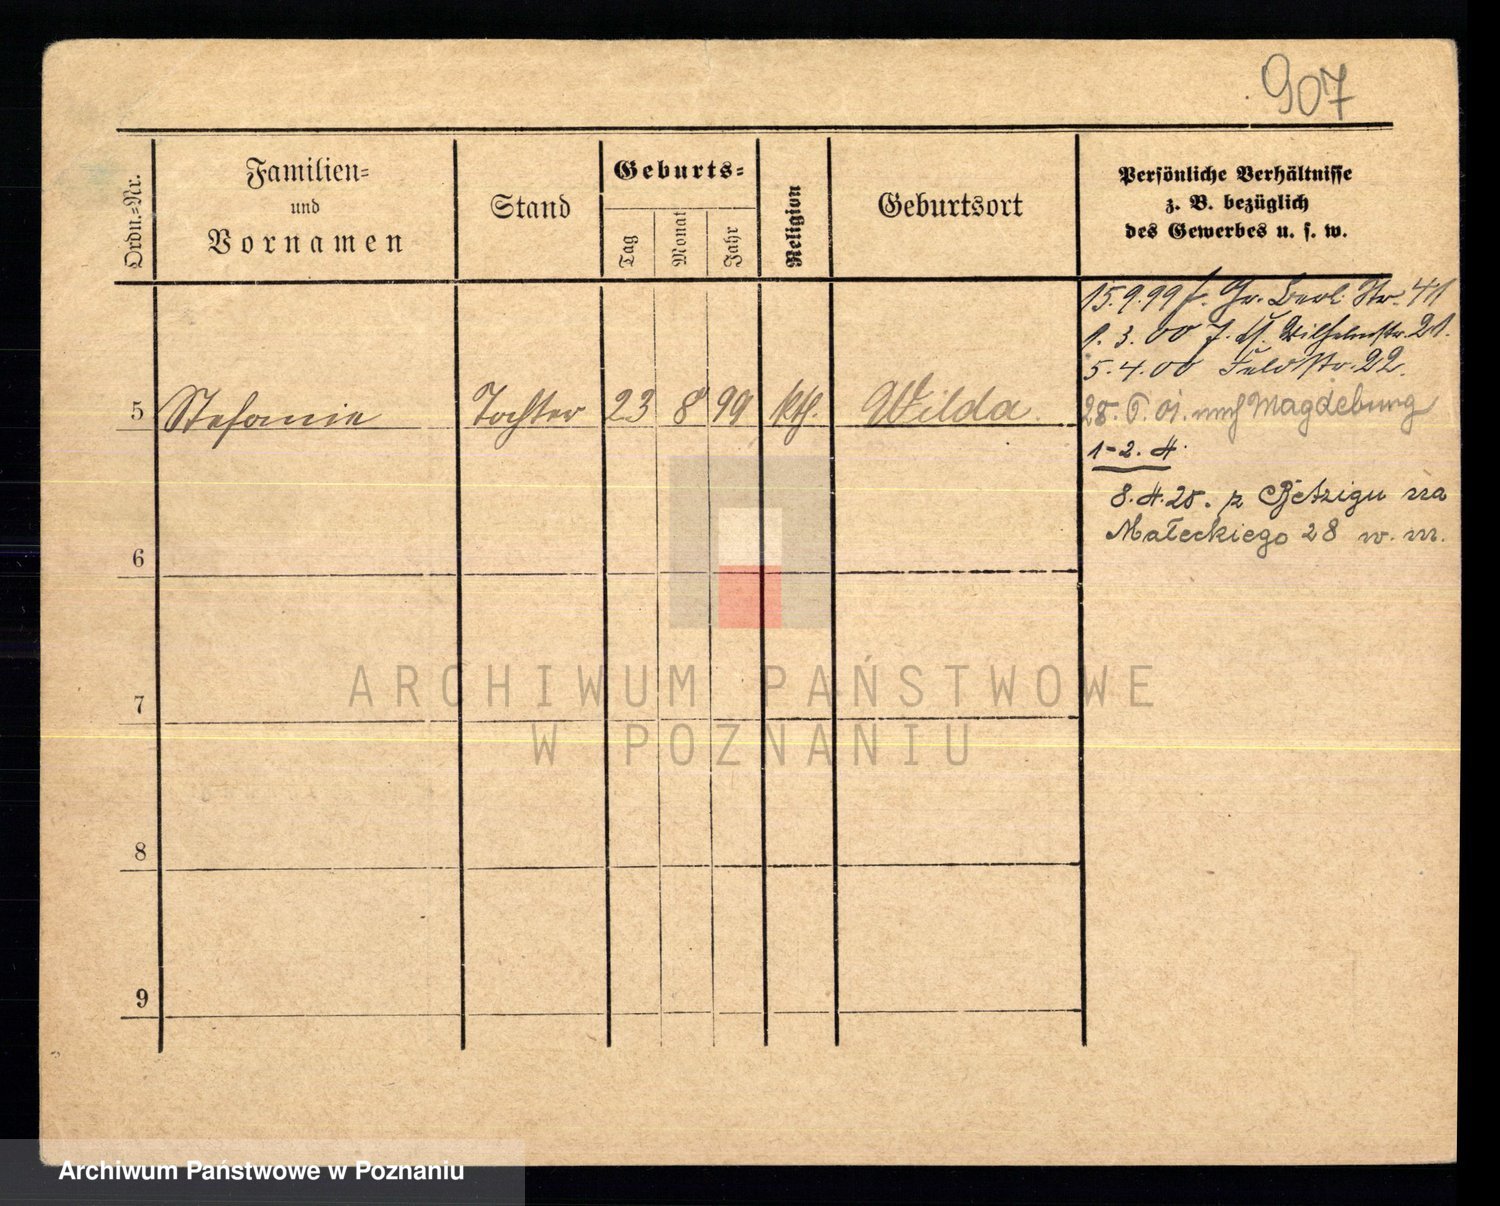 907
Ordn.=Nr.
Familien=
und
Vornamen
Stand
Geburts=
Tag
Monat
Jahr
Religion
Geburtsort
Persönliche Verhältnisse
z. B. bezüglich
des Gewerbes u. s. w.
15.9.99 f. Gr. Berl. Str. 41
1.3.00 Wilhelmstr. 21.
5.4.00 Feldstr. 22.
5 Stefanie Tochter 23 8 99 kth. Wilda
28.6.01. nach Magdeburg
1-2.
6
7
8
9
z na
Małeckiego 28 w. m.
ARCHIWUM PAŃSTWOWE
W POZNANIU
Archiwum Państwowe w Poznaniu